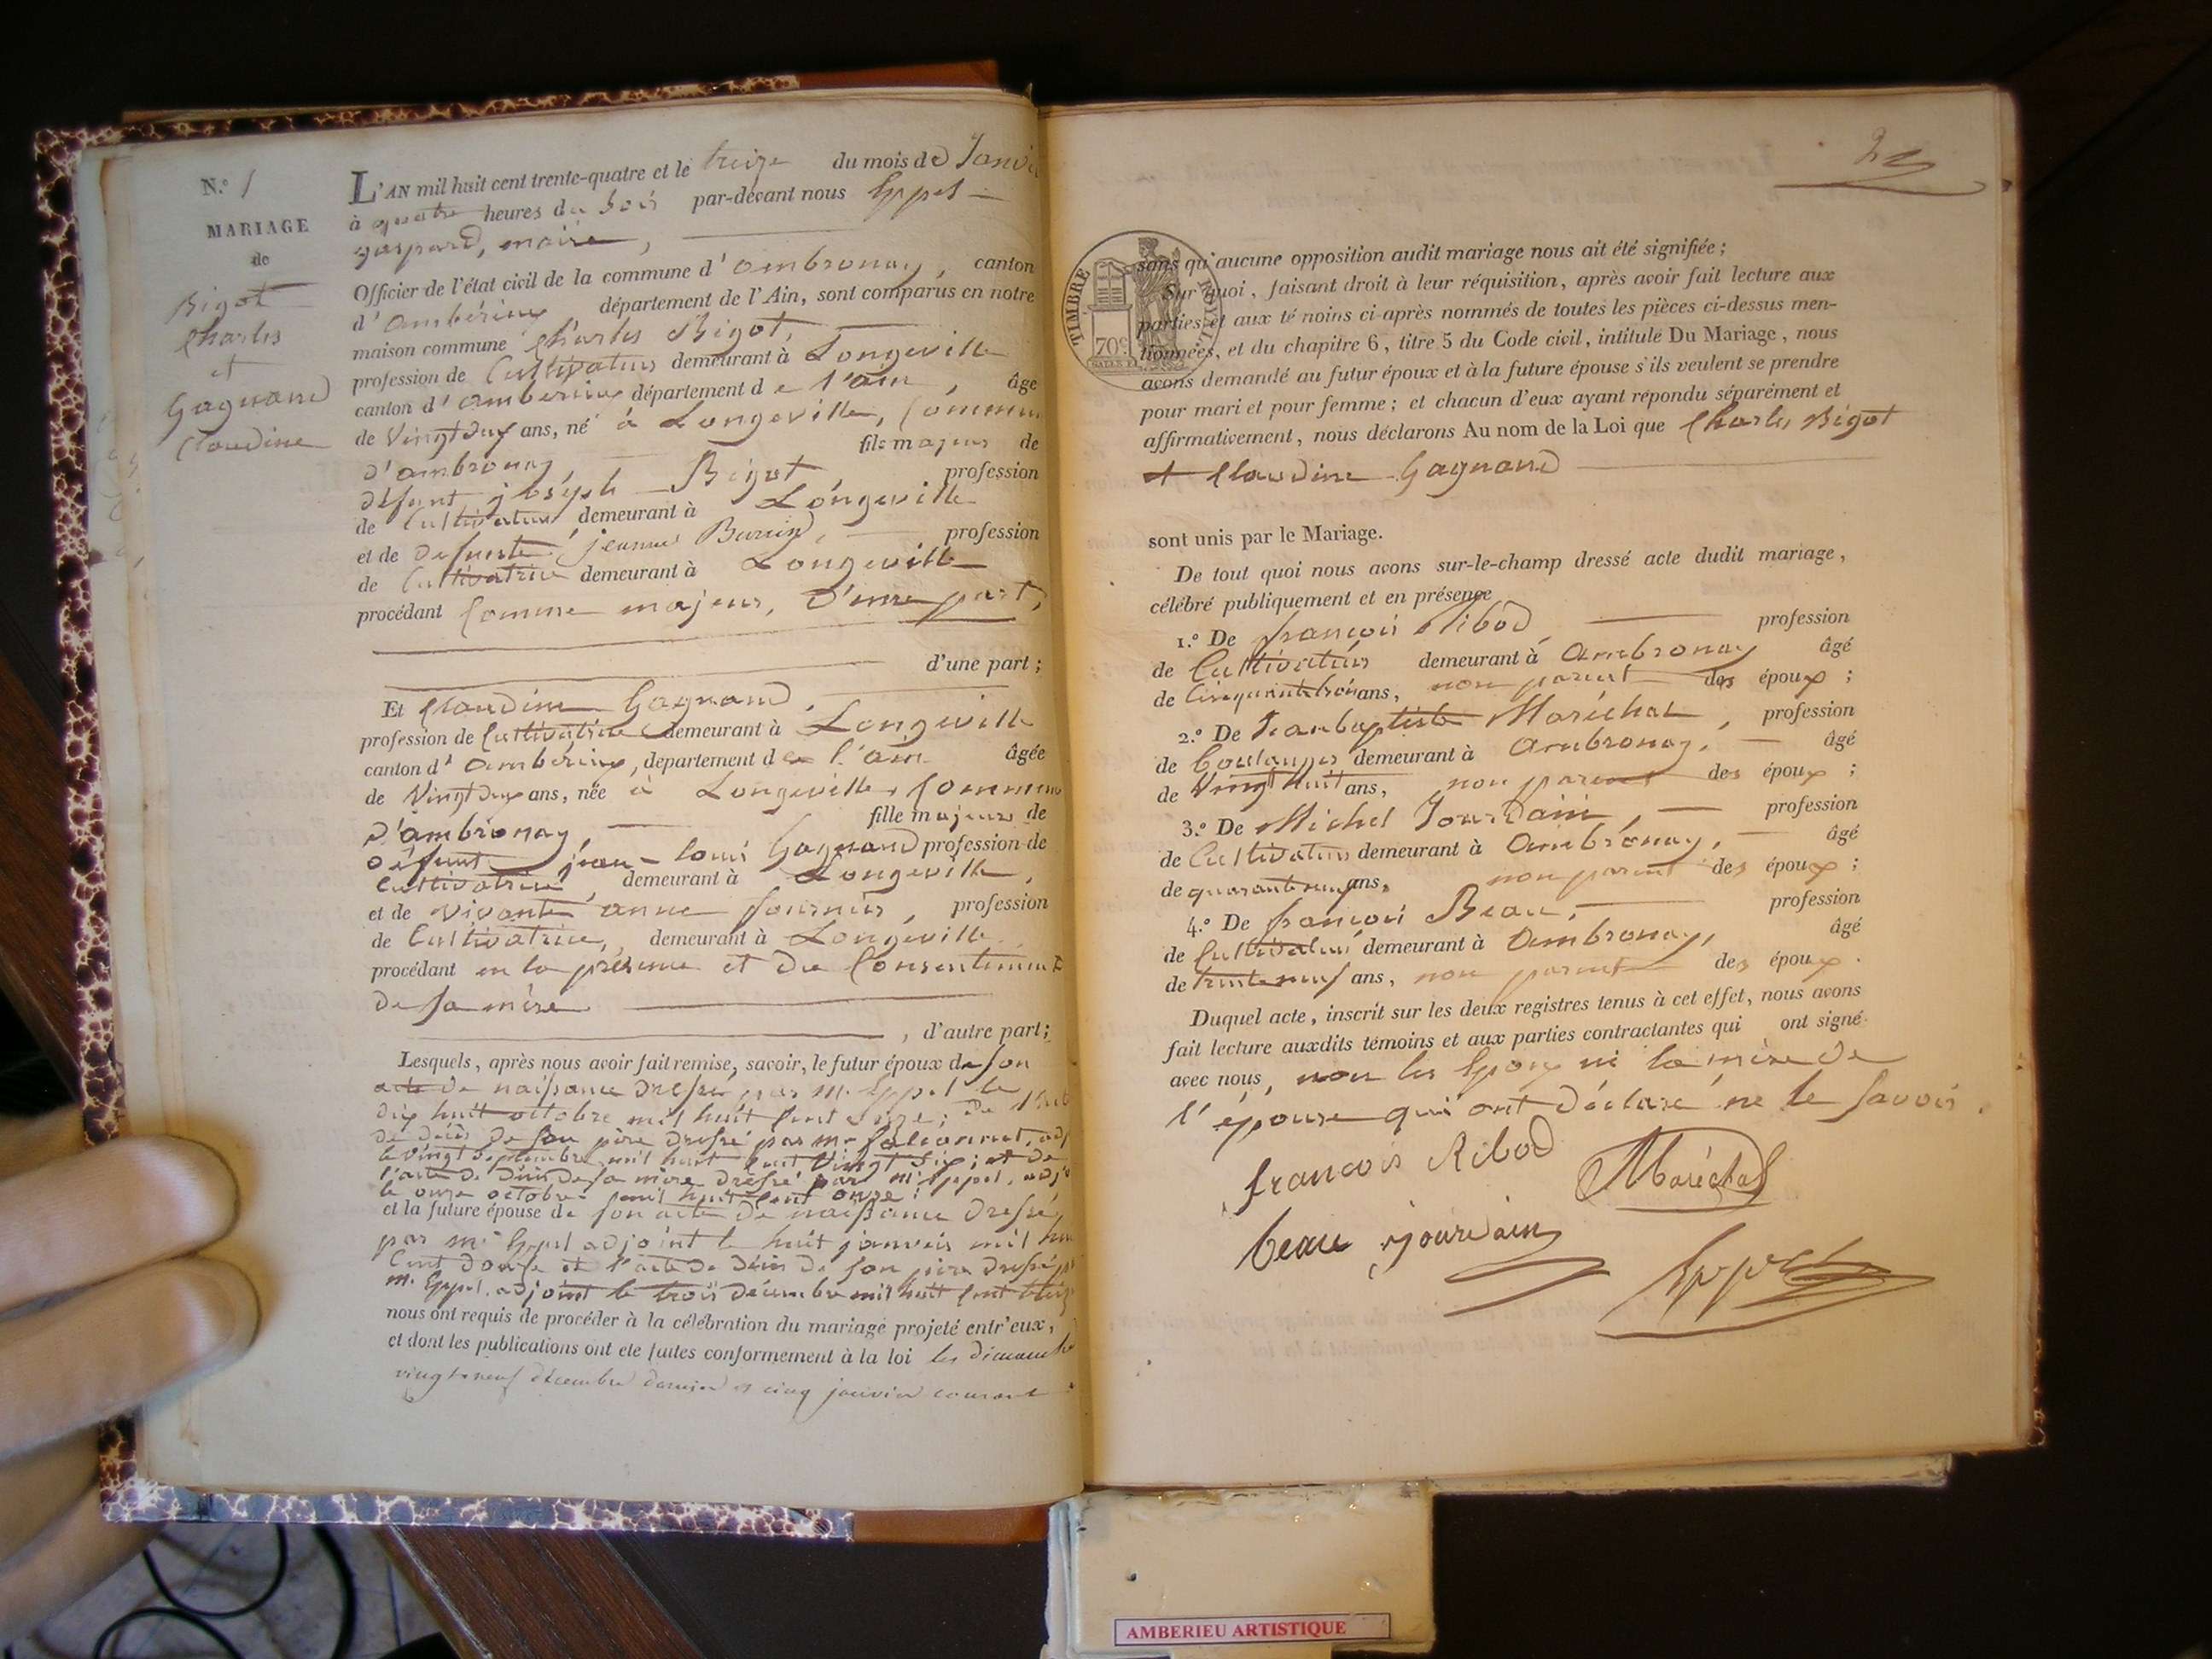 N.° 1
MARIAGE
de
Bigot
Charles
et
Gagnand
Claudine
L'AN mil huit cent trente-quatre et le treize du mois de Janvi
à quatre heures du soir par-devant nous Eppel
gaspard, maire,
Officier de l'état civil de la commune d'ambronay, canton
d'ambérieux, département de l'Ain, sont comparus en notre
maison commune Charles Bigot,
profession de Cultivateur demeurant à Longeville
canton d'amberieux département de l'ain, âgé
de Vingt deux ans, né à Longeville, Commun
d'ambronay, fils majeur de
défunt joseph Bigot, profession
de Cultivateur demeurant à Longeville
et de defunte jeanne profession
de Cultivatrice demeurant à Longeville
procédant Comme majeur, D'une part,
d'une part;
Et Claudine Gagnand,
profession de Cultivatrice demeurant à Longeville
canton d'ambérieux, département de l'ain âgée
de Vingt deux ans, née à Longeville, Commune
d'ambronay, fille majeure de
défunt jean-louis Gagnand profession de
Cultivatrice, demeurant à Longeville,
et de vivante anne fournier, profession
de Cultivatrice, demeurant à Longeville
procédant en la présence et du Consentement
de sa mère
, d'autre part;
Lesquels, après nous avoir fait remise, savoir, le futur époux de son
acte de naissance dressé par m. Eppel le
dix huit octobre mil huit cent onze; de
de décès de son père dressé par mr adj
le vingt septembre mil huit cent Vingt six; et de
l'acte de décès de sa mère dressé par m. Eppel, adj
le onze octobre mil huit cent onze;
et la future épouse de son acte de naissance dressé
par m. Eppel adjoint le huit janvier mil hu
Cent douze et l'acte de décès de son père dressé p
m. Eppel, adjoint le trois décembre mil huit cent
nous ont requis de procéder à la célébration du mariage projeté entr'eux,
et dont les publications ont été faites conformément à la loi les dimanche
vingt neuf décembre dernier et cinq janvier courant
2
TIMBRE ROYAL
70c
sans qu'aucune opposition audit mariage nous ait été signifiée;
Sur quoi, faisant droit à leur réquisition, après avoir fait lecture aux
parties et aux témoins ci-après nommés de toutes les pièces ci-dessus men-
tionnées, et du chapitre 6, titre 5 du Code civil, intitulé Du Mariage, nous
avons demandé au futur époux et à la future épouse s'ils veulent se prendre
pour mari et pour femme; et chacun d'eux ayant répondu séparément et
affirmativement, nous déclarons Au nom de la Loi que Charles Bigot
et Claudine Gagnand
sont unis par le Mariage.
De tout quoi nous avons sur-le-champ dressé acte dudit mariage,
célébré publiquement et en présence
1.° De françois Ribod profession
de Cultivateur demeurant à Ambronay âgé
de Cinquante trois ans, non parent des époux;
2.° De Jean baptiste Maréchal, profession
de Boulanger demeurant à Ambronay, âgé
de Vingt huit ans, non parent des époux;
3.° De Michel Jourdain, profession
de Cultivateur demeurant à Ambronay, âgé
de quarante neuf ans, non parent des époux;
4.° De françois Beau, profession
de Cultivateur demeurant à Ambronay, âgé
de trente neuf ans, non parent des époux.
Duquel acte, inscrit sur les deux registres tenus à cet effet, nous avons
fait lecture auxdits témoins et aux parties contractantes qui ont signé
avec nous, non les Epoux ni la mère de
l'épouse qui ont déclaré ne le savoir.
francois Ribod Maréchal
beau jourdain Eppel
AMBERIEU ARTISTIQUE